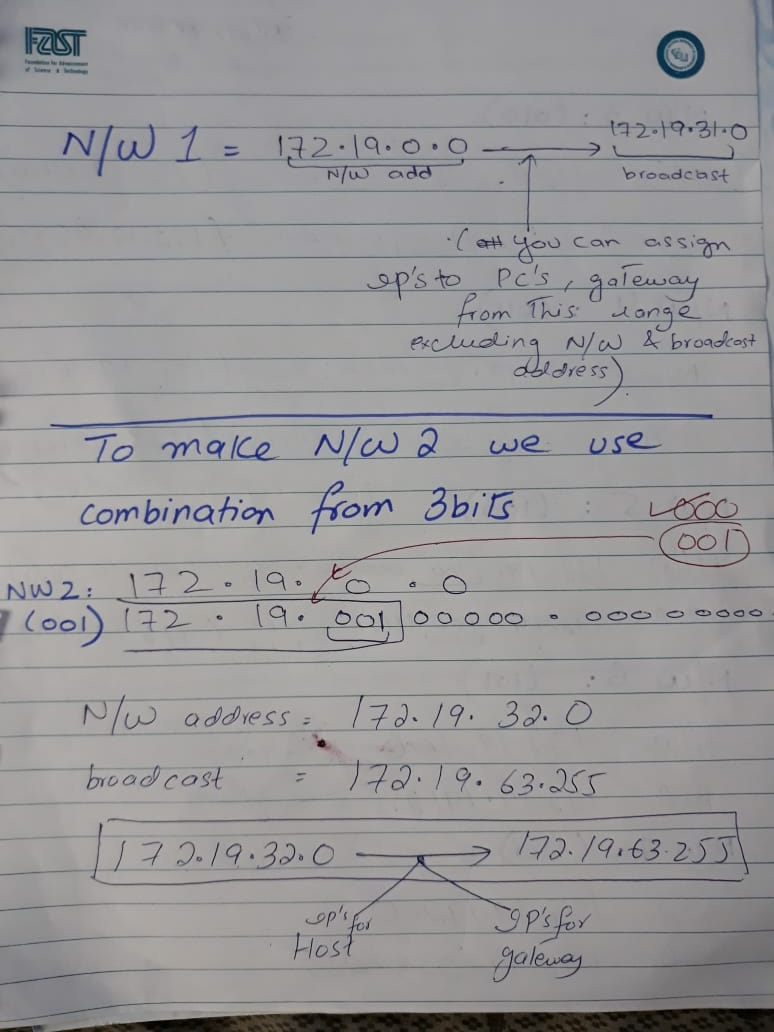 FAST
Foundation for Advancement
of Science & Technology
N/W 1 = 172.19.0.0 → 172.19.31.0
N/W add broadcast
( you can assign
ip's to PC's, gateway
from This range
excluding N/W & broadcast
address).
To make N/W 2 we use
combination from 3bits : 000
001
NW2: 172.19.0.0
(001) 172.19.001 00000.00000000
N/W address = 172.19.32.0
broadcast = 172.19.63.255
172.19.32.0 → 172.19.63.255
ip's for IP's for
Host gateway